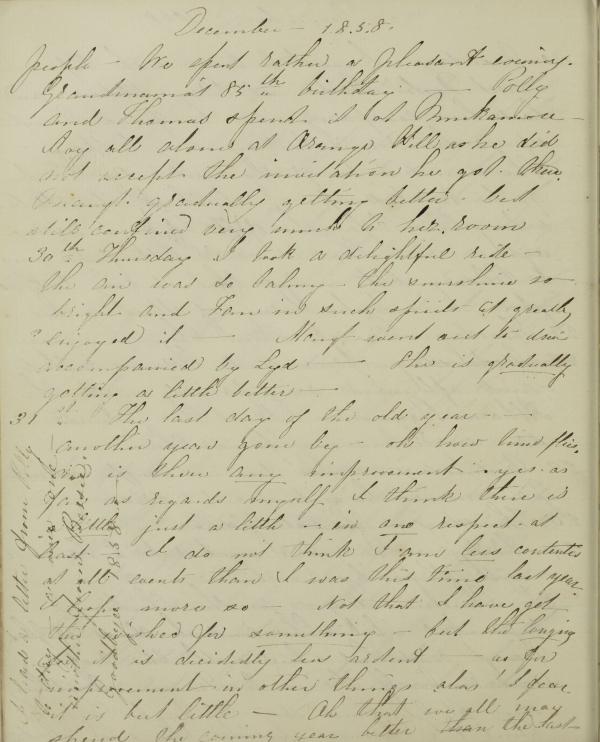 December - 1858.
people - We spent rather a pleasant evening.
Grandmama's 85th birthday - Polly
and Thomas spent it at
Roy all alone at Orange Hill as he did
not accept the invitation he got.
gradually getting better - but
still confined very much to her room
30th Thursday I took a delightful ride -
the air was so balmy - the sunshine so
bright and Fan in such spirits I greatly
enjoyed it - went out to drive
accompanied by Lyd - She is gradually
getting a little better -
31st The last day of the old year - -
another year gone by - oh how time flies.
is there any improvement - yes - as
far as regards myself I think there is
a little just a little - in one respect - at
least I do not think I am less contented
at all events than I was this time last year.
I hope more so - Not that I have got
the wished for something - but the longing
for it is decidedly less ardent - as for
improvement in other things alas! I fear
it is but little - Oh that we all may
spend the coming year better than the last
I had a letter from Polly
goodbye 1858